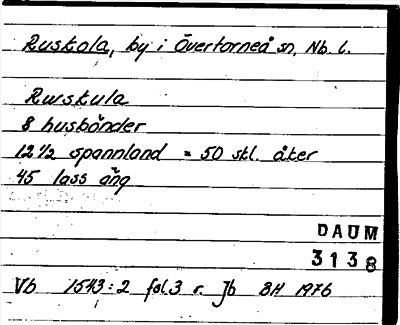 Ruskola, by i Övertorneå sn, Nb. l.
Ruskula
8 husbönder
12 1/2 spannland = 50 skl. åker
45 lass äng
DAUM
3138
Vb 1543:2 fol.3 r. Jb BH 1976